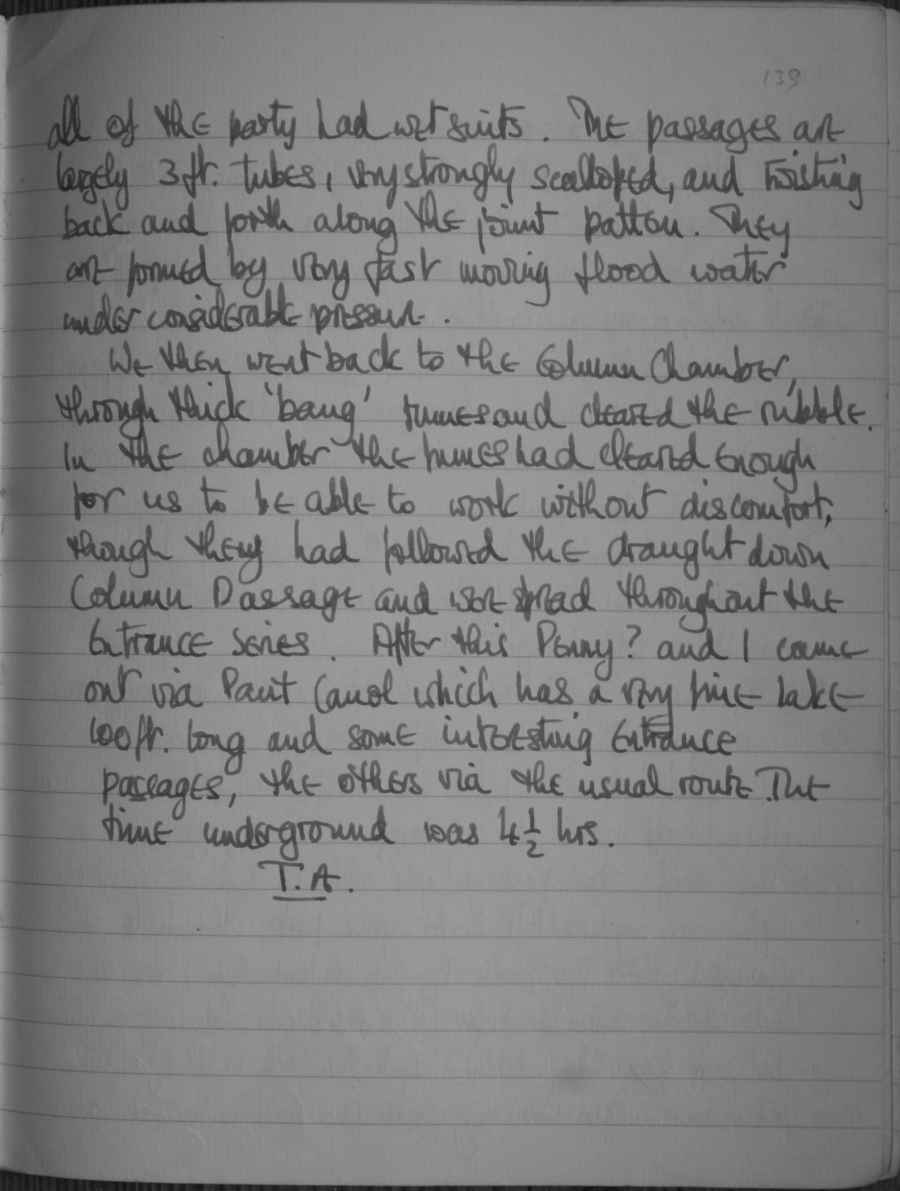 139
all of the party had wet suits. The passages are
largely 3ft. tubes, very strongly scalloped, and twisting
back and forth along the joint pattern. They
are formed by very fast moving flood water
under considerable pressure.
We then went back to the Column Chamber,
through thick 'bang' fumes and cleared the rubble.
In the chamber the fumes had cleared enough
for us to be able to work without discomfort,
though they had followed the draught down
Column Passage and were spread throughout the
Entrance Series. After this Penny? and I came
out via Paint Canal which has a very fine lake
100ft. long and some interesting entrance
passages, the others via the usual route. The
time underground was 4½ hrs.
T.A.